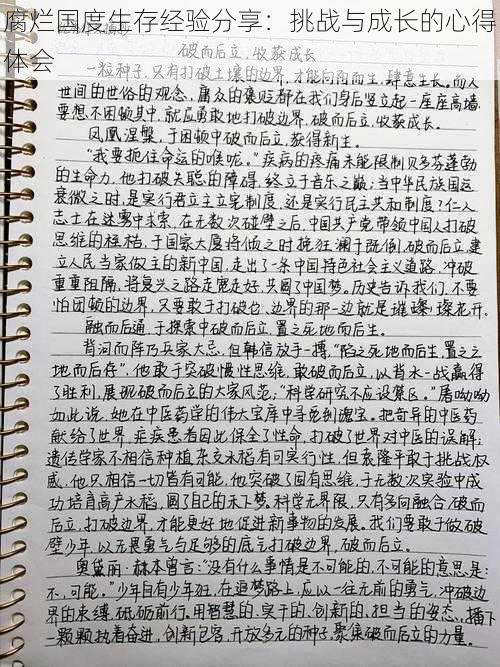 腐烂国度生存经验分享：挑战与成长的心得
体会
破而后立，收获成长
一粒种子，只有打破土壤的边界，才能向阳而生，肆意生长。而人
世间的世俗的观念，庸众的褒贬都在我们身后竖立起一座座高墙，
要想不困顿其中，就应勇敢地打破边界，破而后立，收获成长。
凤凰涅槃，于困顿中破而后立，获得新生。
“我要扼住命运的喉咙。”疾病的疼痛未能限制贝多芬蓬勃
的生命力，他打破失聪的障碍，终立于音乐之巅；当中华民族国运
衰微之时，是实行君主立宪制度，还是实行民主共和制度？仁人
志士在迷雾中求索，在无数次碰壁之后，中国共产党带领中国人打破
思维的桎梏，于国家大厦将倾之时挽狂澜于既倒，破而后立，建
立人民当家做主的新中国，走出了一条中国特色社会主义道路，冲破
重重阻隔，将复兴之路走宽走好，共圆了中国梦。历史告诉我们，不要
怕困顿的边界，只要敢于打破它，边界的那一边就是璀璨璨花开。
融而后通，于探索中破而后立，置之死地而后生。
背河而阵乃兵家大忌，但韩信放手一搏，“陷之死地而后生，置之亡
地而后存”，他敢于突破惯性思维，敢破而后立，以背水一战赢得
了胜利，展现破而后立的大家风范；“科学研究不应设禁区。”屠呦呦
如此说，她在中医药学的伟大宝库中寻觅到瑰宝。把奇异的中医药
献给了世界，疟疾患者因此保全了性命，打破了世界对中医的误解；
遗传学家不相信种植杂交水稻有可实行性，但袁隆平敢于挑战权
威，他只相信一切皆有可能，他突破了固有思维，于无数次实验中成
功培育高产水稻，圆了自己的禾下梦。科学无界限，只有多向融合，破而
后立，打破边界，才能更好地促进新事物的发展，我们要敢于做破
壁少年，以无畏勇气与足够的底气打破边界，破而后立。
奥黛丽·赫本留言：“没有什么事情是不可能的，不可能的意思是：
不，可能。”少年自有少年狂，在追梦路上，应以一往无前的勇气，冲破边
界的束缚，砥砺前行。用智慧的、实干的、创新的、担当的姿态，播下
一颗颗执着奋进，创新包容，开放多元的种子，聚集破而后立的力量。